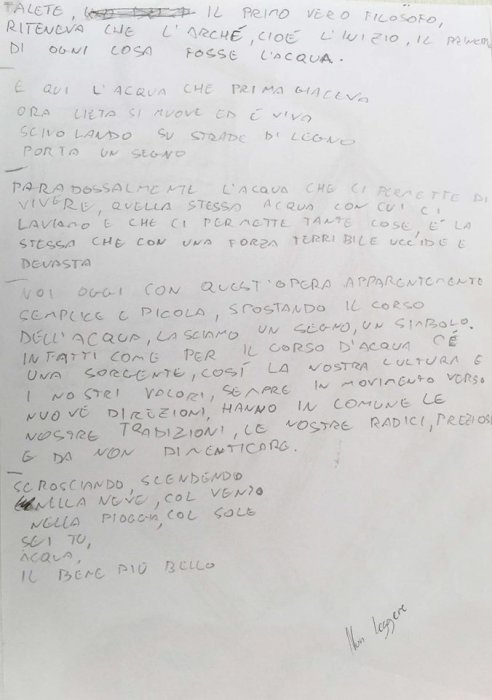 TALETE, IL PRIMO VERO FILOSOFO,
RITENEVA CHE L'ARCHÉ, CIOÉ L'INIZIO, IL PRINCIPI
DI OGNI COSA FOSSE L'ACQUA.
E QUI L'ACQUA CHE PRIMA GIACEVA
ORA LIETA SI MUOVE ED É VIVA
SCIVOLANDO SU STRADE DI LEGNO
PORTA UN SEGNO
PARADOSSALMENTE L'ACQUA CHE CI PERMETTE DI
VIVERE, QUELLA STESSA ACQUA CON CUI CI
LAVIAMO E CHE CI PERMETTE TANTE COSE, E' LA
STESSA CHE CON UNA FORZA TERRIBILE UCCIDE E
DEVASTA
NOI OGGI CON QUEST'OPERA APPARENTEMENTE
SEMPLICE E PICOLA, SPOSTANDO IL CORSO
DELL'ACQUA, LASCIAMO UN SEGNO, UN SIMBOLO.
INFATTI COME PER IL CORSO D'ACQUA C'É
UNA SORGENTE, COSÍ LA NOSTRA CULTURA E
I NOSTRI VALORI, SEMPRE IN MOVIMENTO VERSO
NUOVE DIREZIONI, HANNO IN COMUNE LE
NOSTRE TRADIZIONI, LE NOSTRE RADICI, PREZIOS
E DA NON DIMENTICARE.
SCROSCIANDO, SCENDENDO
NELLA NEVE, COL VENTO
NELLA PIOGGIA, COL SOLE
SEI TU,
ACQUA,
IL BENE PIÙ BELLO
Non leggere